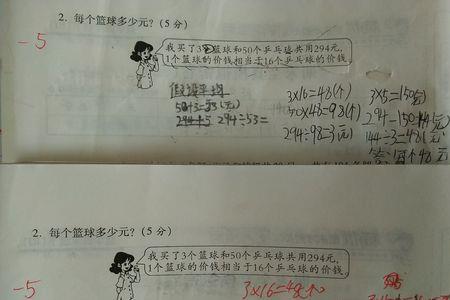 2. 每个篮球多少元？（5 分）
-5
我买了3个篮球和50个乒乓球共用294元，
1个篮球的价钱相当于16个乒乓球的价钱。
假设平均
50+3=53(元)
294÷5 294÷53=
3×16=48(个)
50+48=98(个)
294÷98=3(元)
3×5=150(元)
294-150=144(元)
144÷3=48(元)
答：每个48元
2. 每个篮球多少元？（5 分）
-5
我买了3个篮球和50个乒乓球共用294元，
1个篮球的价钱相当于16个乒乓球的价钱。
3×16=48个